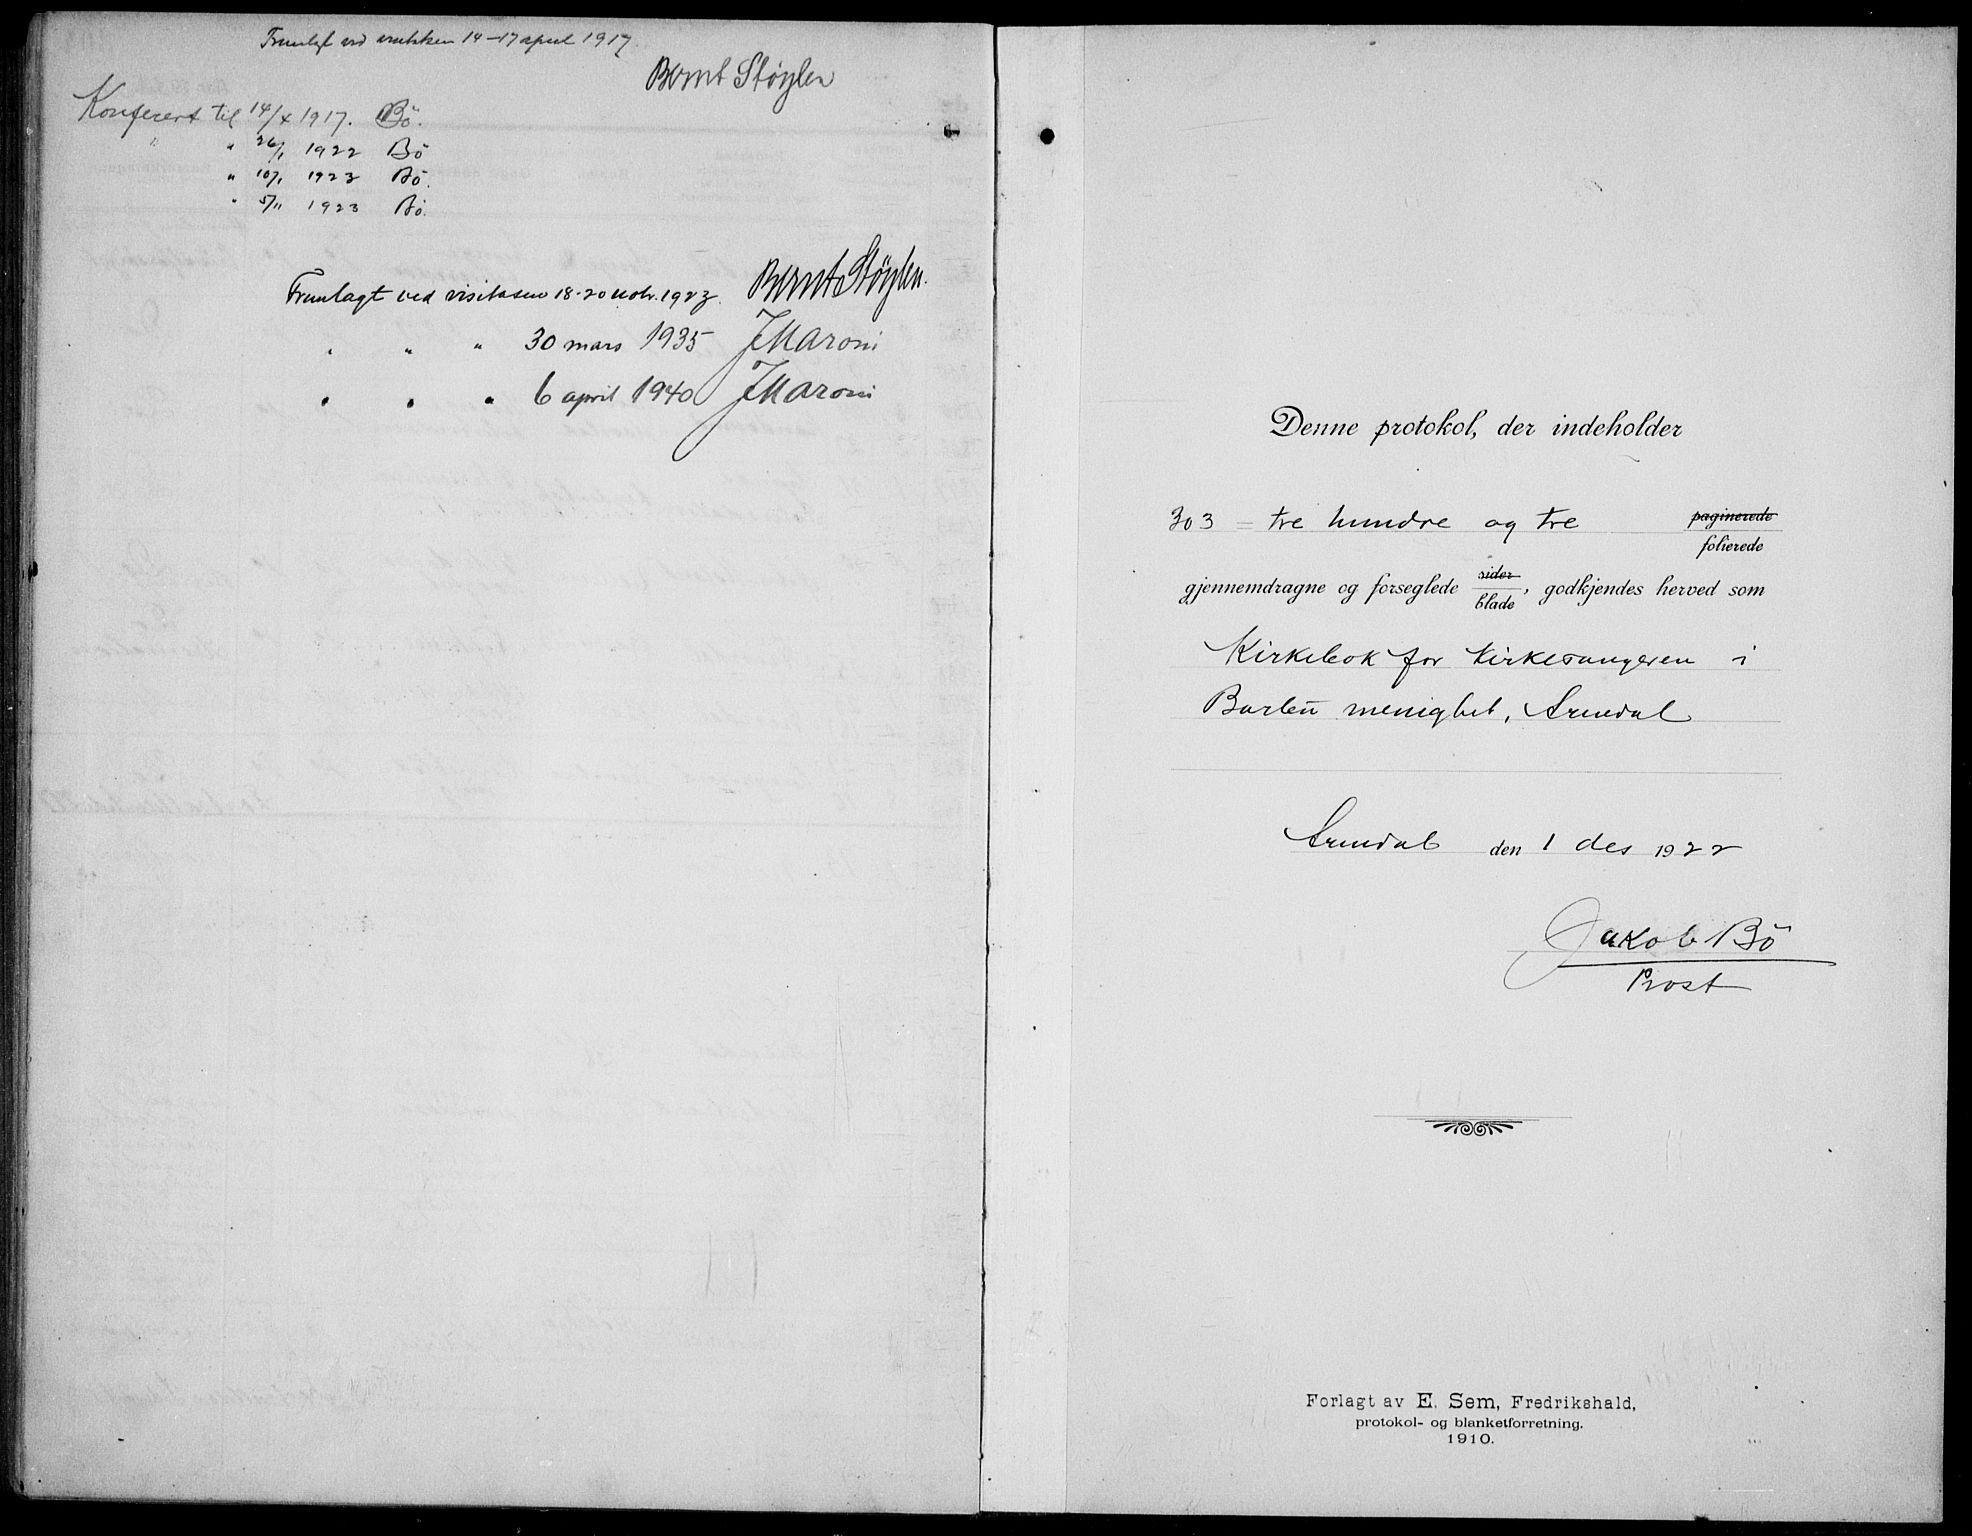 Fremlagt ved visitasen 14–17 april 1917.
Bernt Støylen
Konferert til 14/4 1917. Bö.
" " 26/1 1922 Bö
" 10/1 1923 Bö.
" 5/11 1923 Bö.
Fremlagt ved visitasen 18-20 novbr. 1923. Bernt Støylen.
" " " 30 mars 1935 J Maroni
" " " 6 april 1940 J Maroni
Denne protokol, der indeholder
303 = tre hundre og tre paginerede
folierede
gjennemdragne og forseglede sider
blade, godkjendes herved som
Kirkebok for kirkesangeren i
Barbu menighet, Arendal
Arendal den 1 des 1922
Jakob Bö
Prost
Forlagt av E. Sem, Fredrikshald,
protokol- og blanketforretning.
1910.